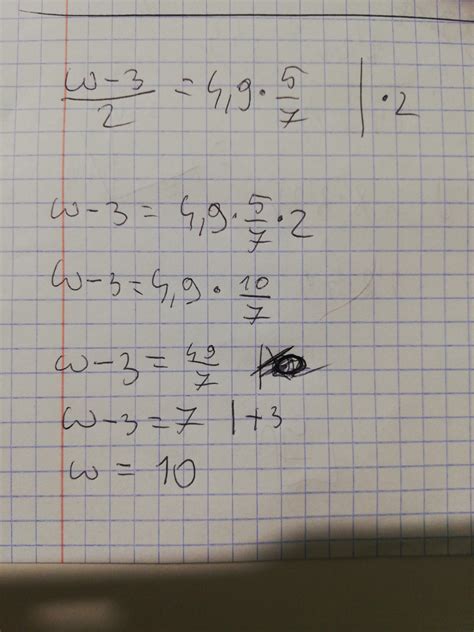 (w-3)/2 = 4,9 · 5/7 | · 2
w-3 = 4,9 · 5/7 · 2
w-3 = 4,9 · 10/7
w-3 = 49/7 |
w-3 = 7 | +3
w = 10